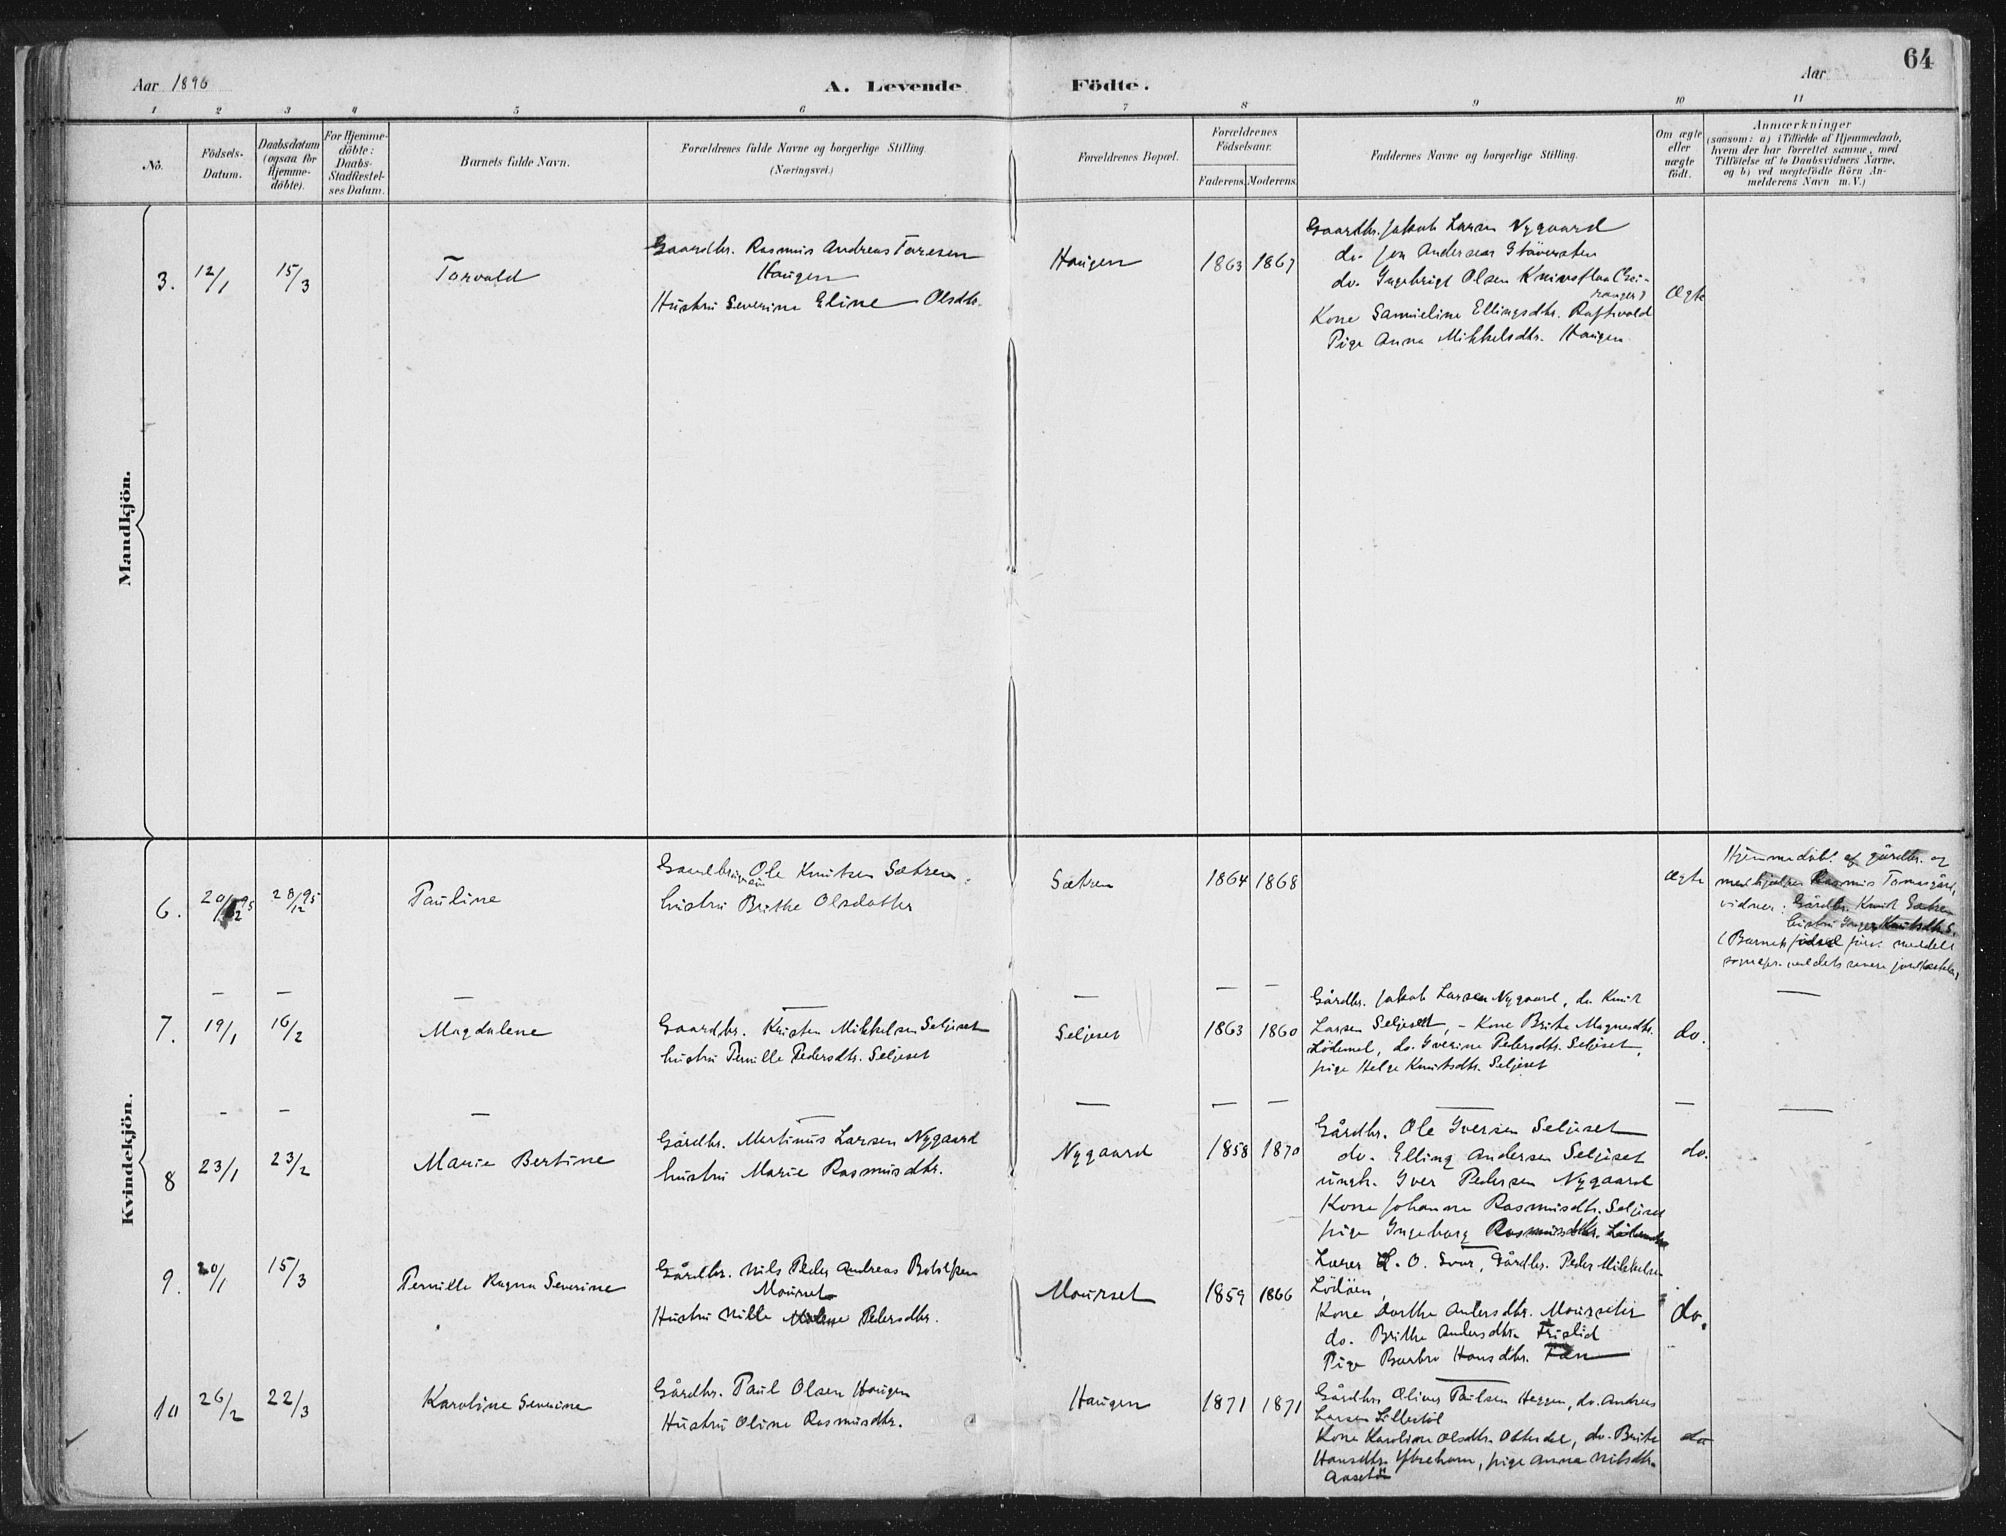 64
Aar 1896
A. Levende Födte.
Aar
1 2 3 4 5 6 7 8 9 10 11
No.
Födsels-Datum.
Daabsdatum (ogsaa for Hjemme-döbte).
For Hjemme-döbte: Daabs-Stadfæstel-ses Datum.
Barnets fulde Navn.
Forældrenes fulde Navne og borgerlige Stilling.
(Næringsvei.)
Forældrenes Bopæl.
Forældrenes Födselsaar.
Faderens. Moderens.
Faddernes Navne og borgerlige Stilling.
Om ægte eller uægte födt.
Anmærkninger
(saasom: a) i Tilfælde af Hjemmedaab,
hvem der har forrettet samme, med
Tilföielse af to Daabsvidners Navne,
og b) ved uægtefödte Börn An-
melderens Navn m. V.)
Mandkjön.
3. 12/1 15/3 Torvald
Gaardbr. Rasmus Andreas Toresen
Haugen
Hustru Severine Eline Olsdtr.
Haugen 1863 1867
Gaardbr. Jakob Larsen Nygaard
do. Jon Andersen
do. Ingebrigt Olsen Knivsflaa (Gei-
ranger)
Kone Samueline Ellingsdtr. Raftevold
Pige Anna Mikkelsdtr. Haugen
Ægte
Kvindekjön.
6. 20/12 95 28/12 95 Pauline
Ole Knutsen Sætren
hustru Brithe Olsdatter
Sætren 1864 1868
Ægte
Hjemmedöbt af gårdbr. og
medhjelper Rasmus Tomasgård,
vidner: Gårdbr. Knut Sætre
hustru Inger Knutsdtr S.
(Barnets födsel meddelt
7. 19/1 16/2 Magdalene
Gaardbr. Kristen Mikkelsen Seljeset
hustru Pernille Pedersdtr. Seljeset
Seljeset 1863 1860
Gårdbr. Jakob Larsen Nygaard, do Knut
Larsen Seljeset, - Kone Brite Magnesdtr.
Lödemel, do. Iverine Pedersdtr. Seljeset,
pige Helge Knutsdtr. Seljeset
do.
8 23/1 23/2 Marie Bertine
Gårdbr. Martinus Larsen Nygaard
hustru Marie Rasmusdtr.
Nygaard 1858 1870
Gårdbr. Ole Iversen Seljeset
do. Elling Andersen Seljeset
ungk. Iver Pedersen Nygaard
Kone Johanne Rasmusdtr. Seljeset
pige Ingeborg Rasmusdtr.
do.
9. 20/1 15/3 Pernille Ragna Severine
Gårdbr. Nils Peder Andreas
Mourset
Hustru Nille Pedersdtr.
Mourset 1859 1866
Lærer L. O. Svor, Gårdbr. Peder Mikkelsen
Lödöen,
Kone Dorthe Andersdtr. Mourseter
do. Brithe Andersdtr. Frislid
Pige Barbro Hansdtr.
do.
10 26/2 22/3 Karoline Severine
Gårdbr. Paul Olsen Haugen
Hustru Oline Rasmusdtr.
Haugen 1871 1871
Gårdbr. Oliver Paulsen Heggen, do. Andreas
Larsen Lillestöl
Kone Karoline Olsdtr. Otterdal, do. Brite
Hansdtr. Ytrehorn, pige Anna Nilsdtr.
do